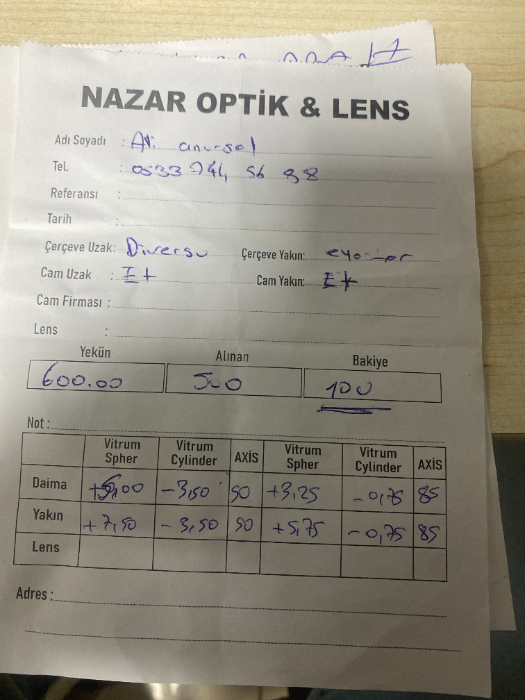 NAZAR OPTİK & LENS
Adı Soyadı : Ali
Tel. : 0533 744 56 88
Referansı :
Tarih :
Çerçeve Uzak: Diversu Çerçeve Yakın:
Cam Uzak : Cam Yakın:
Cam Firması :
Lens :
Yekün Alınan Bakiye
600.00 500 100
Not :
Vitrum Spher Vitrum Cylinder AXİS Vitrum Spher Vitrum Cylinder AXİS
Daima +5,00 -3,50 90 +3,25 -0,75 85
Yakın +7,50 -3,50 90 +5,75 -0,75 85
Lens
Adres :